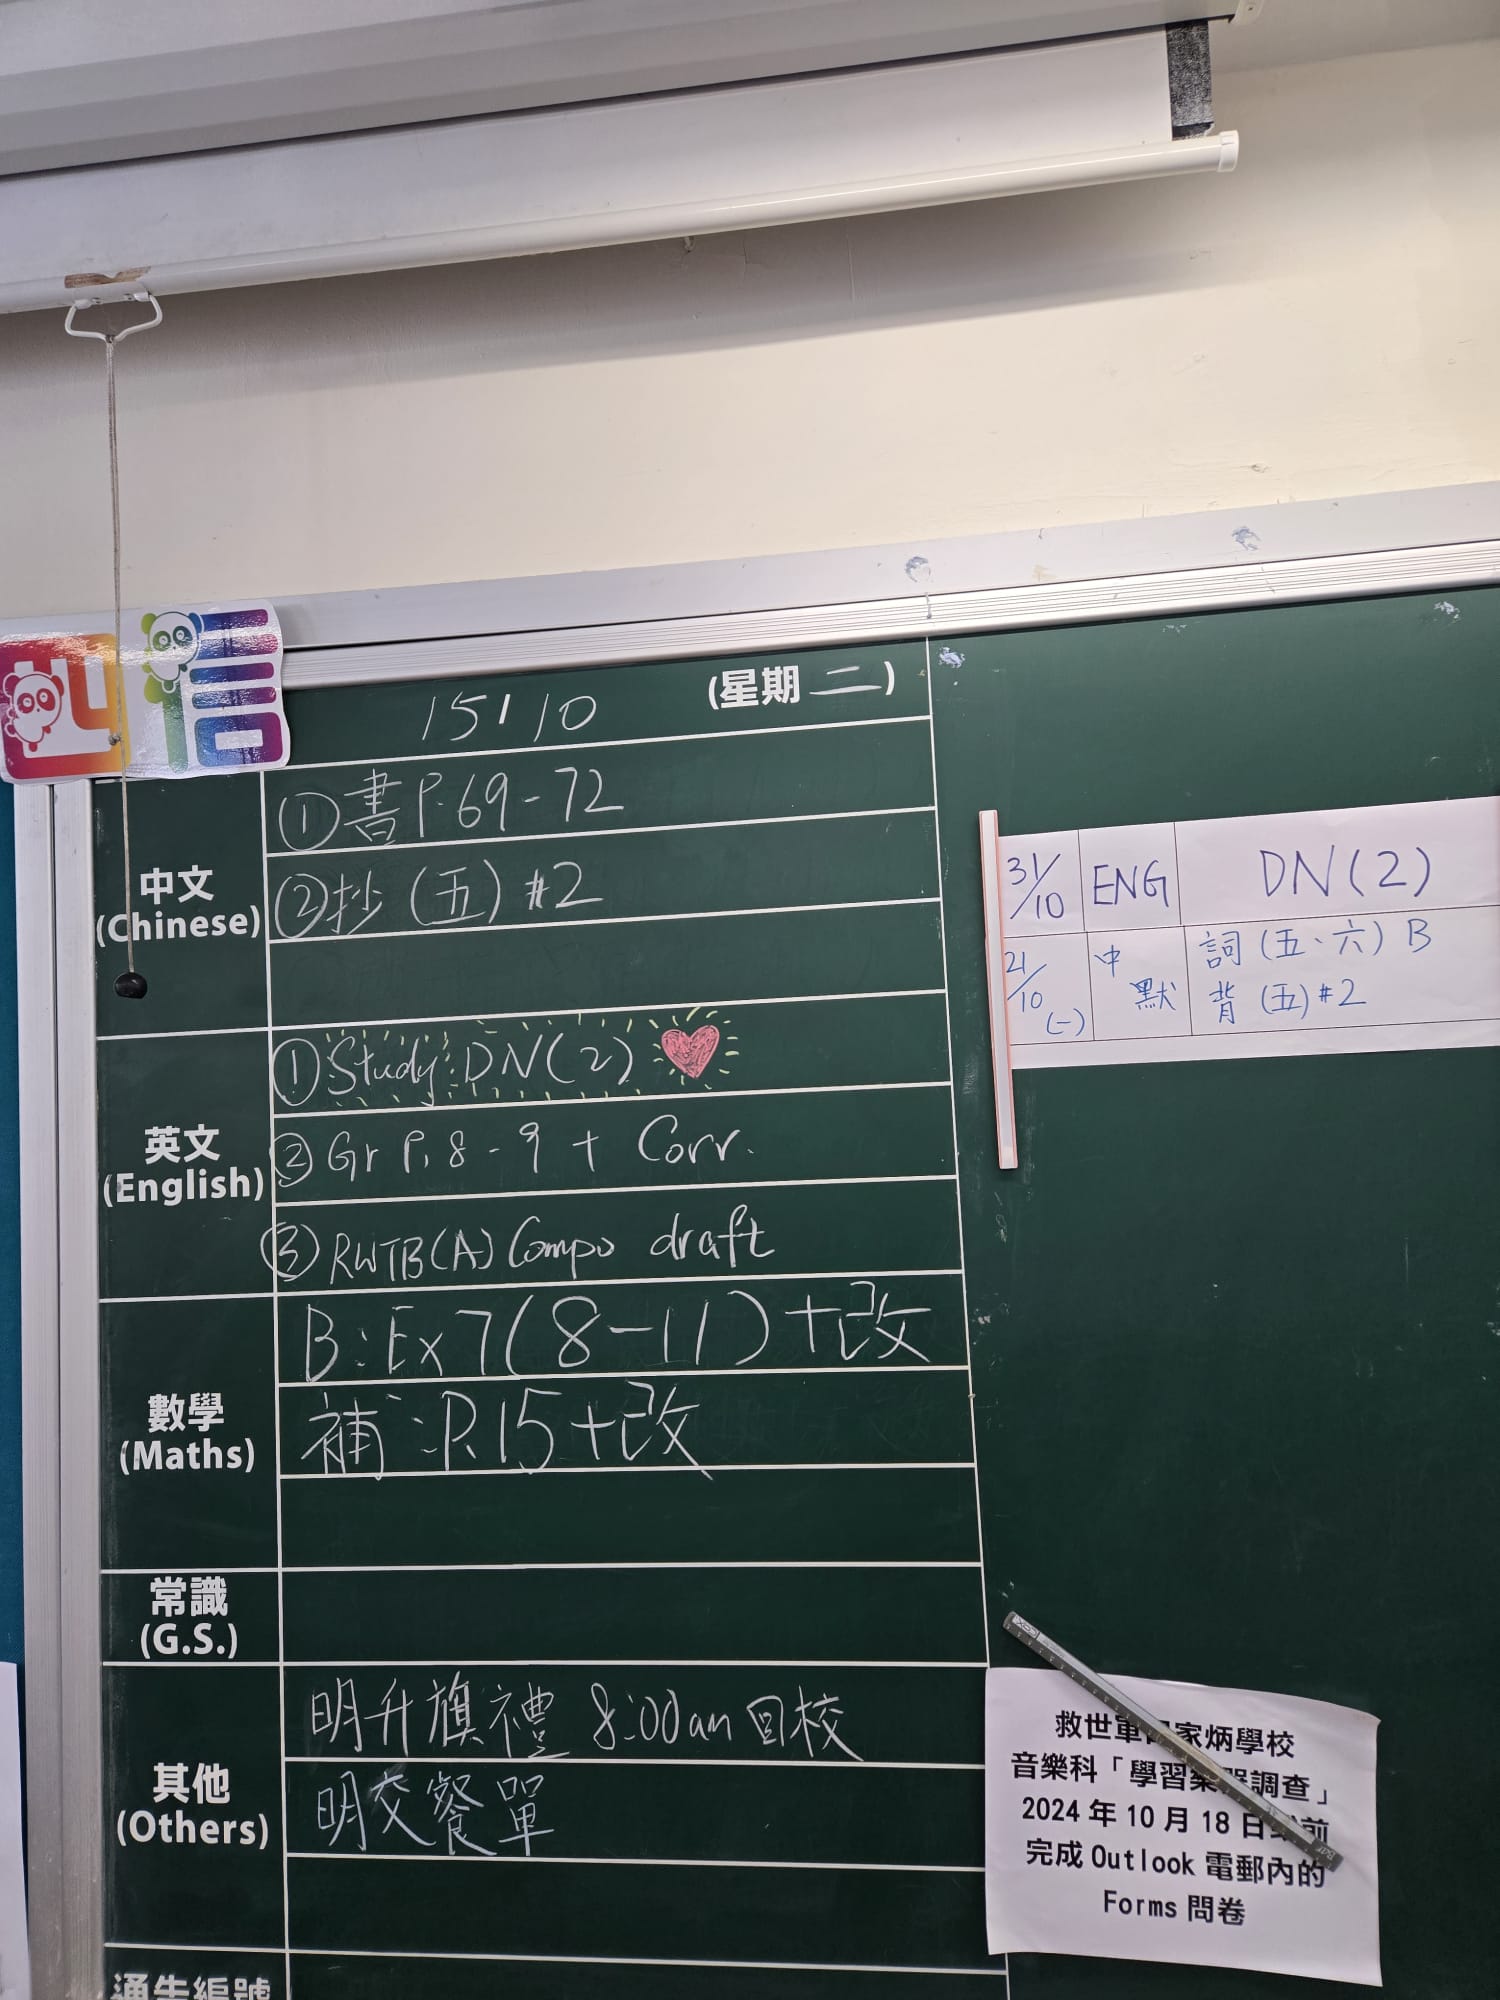 信
15/10
(星期二)
中文
(Chinese)
①書P.69-72
②抄(五)#2
英文
(English)
①Study DN(2)
②Gr P.8-9 + Corr.
③RWTB(A) Compo draft
數學
(Maths)
B:Ex7(8-11)+改
補:P.15+改
常識
(G.S.)
其他
(Others)
明升旗禮 8:00am回校
明交餐單
通告編號
31/10 ENG DN(2)
21/10(一) 中默 詞(五、六)B
背(五)#2
救世軍 家炳學校
音樂科「學習樂器調查」
2024年10月18日或前
完成Outlook電郵內的
Forms問卷